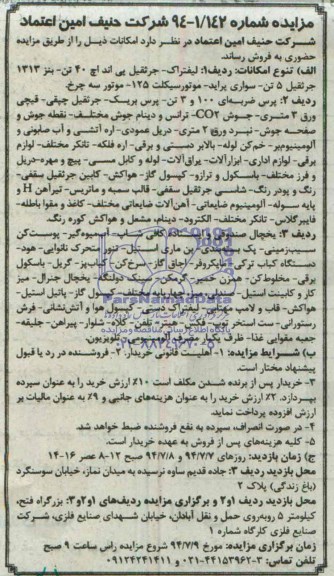 مزایده شماره ۹۴-۱/۱۴۲ شرکت حنیف امین اعتماد
شرکت حنیف امین اعتماد در نظر دارد امکانات ذیل را از طریق مزایده
حضوری به فروش رساند.
الف) تنوع امکانات: ردیف۱: لیفتراک- جرثقیل پی اند اچ ۴۰ تن- بنز ۱۳۱۳
جرثقیل ۵ تن- سواری پراید- موتورسیکلت ۱۲۵- موتور سه چرخ.
ردیف ۲: پرس ضربه‌ای ۱۰۰ و ۳ تن- پرس بریسک- جرثقیل چپقی- قیچی
ورق ۳ متری- جوش CO۲- ترانس و دینام جوش مختلف- نقطه جوش و
صفحه جوش- نبرد ورق ۲ متری- دریل عمودی- اره آتشی و آب صابونی و
آلومینیوم‌بر- خم‌کن لوله- بالابر دستی و برقی- اره فلکه- تانکر مختلف- لوازم
برقی- لوازم اداری- ابزارآلات- یراق‌آلات- لوله و کابل مسی- پیچ و مهره- دریل
و فرز مختلف- باسکول و ترازو- کپسول گاز- هواکش- کابین جرثقیل سقفی-
رنگ و پودر رنگ- شاسی جرثقیل سقفی- قالب سمبه و ماتریس- تیرآهن H و
پایه سوله- آلومینیوم ضایعاتی- آهن‌آلات ضایعاتی مختلف- کاغذ و مقوا باطله-
فایبرگلاس- تانکر مختلف- الکترود- دینام، مشعل و هواکش کوره رنگ.
ردیف ۳: یخچال صندوقی و ایستاده- کافی شاپ- آبمیوه‌گیر- پوست‌کن
سیب‌زمینی- یک بسته‌بندی- بن ماری استیل- تنور متحرک نانوایی- هود-
دستگاه کباب ترکی- مایکروفر- اجاق گاز- سرخ‌کن- کباب‌پز- گریل- باسکول
برقی- مخلوط‌کن- همزن خمیر- گرمکن- سینک دولنگه- یخچال جنرال- میز
کار و کابینت استیل- صندلی و چهارپایه مختلف- کپسول گاز- پاتیل استیل-
هواکش- قاب و لامپ مهتابی-
رستورانی-
جعبه مقوایی غذا- ظرف یکبار مصرف آلومینیومی- تلویزیون.
ب) شـرایط مزایده: ۱- اهلیـت قانونی خریدار. ۲- فروشنده در رد یا قبول
پیشنهاد مختار است.
۳- خریدار پس از برنده شدن مکلف است ۱۰٪ ارزش خرید را به عنوان سپرده
بپردازد. ۲٪ ارزش خرید را به عنوان هزینه‌های جانبی و ۹٪ به عنوان مالیات بر
ارزش افزوده پرداخت نماید.
۴- در صورت انصراف، سپرده به نفع فروشنده ضبط خواهد شد.
۵- کلیه هزینه‌های پس از فروش به عهده خریدار است.
ج) زمان بازدید: روزهای ۹۴/۷/۷ و ۹۴/۷/۸ صبح ۱۲-۸ عصر ۱۶-۱۴
محل بازدید ردیف ۳: جاده قدیم ساوه نرسیده به میدان نماز، خیابان سوسنگرد
(باغ زندگی) پلاک ۲
محل بازدید ردیف ۱و۲ و برگزاری مزایده ردیف‌های ۱و۲و۳: بزرگراه فتح،
کیلومتر ۵ روبه‌روی حمل و نقل آبادان، خیابان شهدای صنایع فلزی، شرکت
صنایع فلزی کارگاه شماره ۱
زمان برگزاری مزایده: مورخ ۹۴/۷/۹ شروع مزایده راس ساعت ۹ صبح
تلفن تماس: ۳-۴۴۱۵۳۹۶۲-۰۲۱ و ۰۹۱۲۴۲۴۱۴۱۱